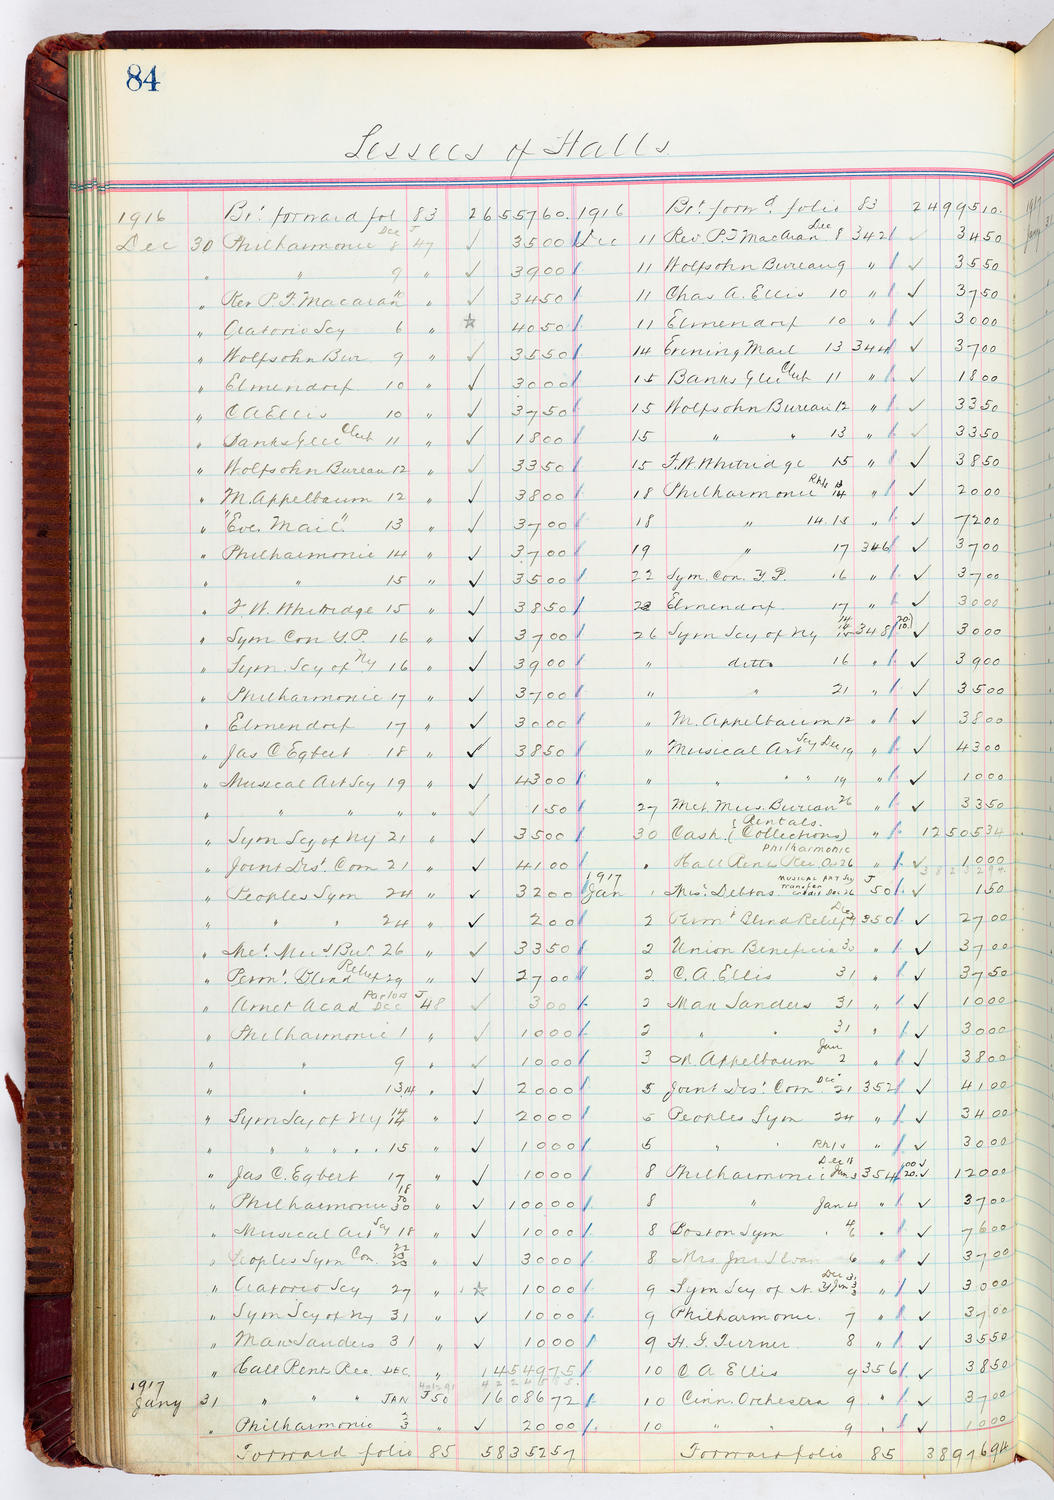 84
Lessees of Halls
1916 Bt. forward fol 83 2655760.
Dec 30 Philharmonic Dec 8 J 47 ✓ 3500
" " 9 " ✓ 3900
" Rev P.J. Macaran " " ✓ 3450
" Oratorio Scy 6 " ☆ 4050
" Wolfsohn Bur 9 " ✓ 3550
" Elmendorf 10 " ✓ 3000
" C A Ellis 10 " ✓ 3750
" Banks Glee Club 11 " ✓ 1800
" Wolfsohn Bureau 12 " ✓ 3350
" M. Appelbaum 12 " ✓ 3800
" "Eve. Mail" 13 " ✓ 3700
" Philharmonic 14 " ✓ 3700
" " 15 " ✓ 3500
" F. W. Whitridge 15 " ✓ 3850
" Sym Con Y.P. 16 " ✓ 3700
" Sym. Scy of Ny 16 " ✓ 3900
" Philharmonic 17 " ✓ 3700
" Elmendorf 17 " ✓ 3000
" Jas C Egbert 18 " ✓ 3850
" Musical Art Scy 19 " ✓ 4300
" " " " " " ✓ 150
" Sym Scy of Ny 21 " ✓ 3500
" Joint Dis. Com 21 " ✓ 4100
" Peoples Sym 24 " ✓ 3200
" " " 24 " ✓ 200
" Met. Mus. Bur. 26 " ✓ 3350
" Permt. Blind Relief 29 " ✓ 2700
" Amer Acad Parlors Dec J 48 ✓ 300
" Philharmonic 1 " ✓ 1000
" " 9 " ✓ 1000
" " 13 14 " ✓ 2000
" Sym Scy of Ny 14 " ✓ 2000
" " " " " 15 ✓ 1000
" Jas C. Egbert 17 " ✓ 1000
" Philharmonic 18 to 30 " ✓ 10000
" Musical Art Scy 18 " ✓ 1000
" Peoples Sym Con. 22 23 " ✓ 3000
" Oratorio Scy 27 " ☆ 1000
" Sym Scy of Ny 31 " ✓ 1000
" Max Sanders 31 " ✓ 1000
" Hall Rent Rec. DEC. " 1454975
1917
Jany 31 " " " JAN J 50 1608672
" Philharmonic 3 " ✓ 2000
Forward folio 85 5835257
1916 Bt. forwd folio 83 2499510.
Dec 11 Rev. P.J. Macaran Dec 8 342 ✓ 3450
11 Wolfsohn Bureau 9 " ✓ 3550
11 Chas A. Ellis 10 " ✓ 3750
11 Elmendorf 10 " ✓ 3000
14 Evening Mail 13 344 ✓ 3700
15 Banks Glee Club 11 " ✓ 1800
15 Wolfsohn Bureau 12 " ✓ 3350
15 " " 13 " ✓ 3350
15 F. W. Whitridge 15 " ✓ 3850
18 Philharmonic Rhls 13 14 " ✓ 2000
18 " 14.15 " ✓ 7200
19 " 17 346 ✓ 3700
22 Sym. Con. Y.P. 16 " ✓ 3700
22 Elmendorf 17 " ✓ 3000
26 Sym Scy of Ny 14 14 15 348 20. 10. ✓ 3000
" ditto 16 " ✓ 3900
" " 21 " ✓ 3500
" M. Appelbaum 12 " ✓ 3800
" Musical Art Scy Dec 19 " ✓ 4300
" " " " 19 " ✓ 1000
27 Met. Mus. Bureau 26 " ✓ 3350
30 Cash. (Rentals. Collections) " 1250534
" Philharmonic Hall Rent Rec. Oct 26 " ✓ 1000
3823294.
1917
Jan 1 Mis. Debtors MUSICAL ART Scy Transfer Credit Dec 26 J 50 ✓ 150
2 Permt Blind Relief Dec 29 350 ✓ 2700
2 Union Beneficia 30 " ✓ 3700
2 C. A. Ellis 31 " ✓ 3750
2 Max Sanders 31 " ✓ 1000
2 " " 31 " ✓ 3000
3 M. Appelbaum Jan 2 " ✓ 3800
5 Joint Dis. Com Dec 21 352 ✓ 4100
5 Peoples Sym 24 " ✓ 3400
5 " " Rhls " ✓ 3000
8 Philharmonic Dec 18 Jan 3 354 100 20. ✓ 12000
8 " Jan 4 " ✓ 3700
8 Boston Sym " 4 6 " ✓ 7600
8 Mrs Jno Sloan 6 " ✓ 3700
9 Sym Scy of N.Y Dec 31 Jan 3 " ✓ 3000
9 Philharmonic. 7 " ✓ 3700
9 H. G. Turner 8 " ✓ 3550
10 C A Ellis 9 356 ✓ 3850
10 Cinn. Orchestra 9 " ✓ 3700
10 " " 9 " ✓ 1000
Forward folio 85 3897694